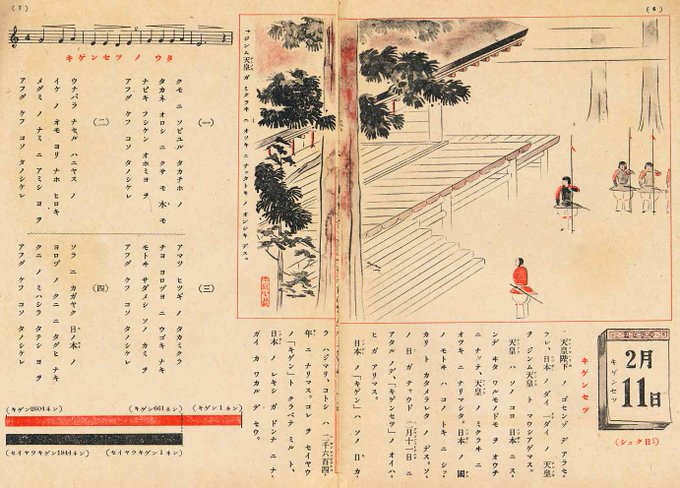 (6)
2月
11日
キゲンセツ
(シュク日)
キゲンセツ
天皇陛下 ノ ゴセンゾ デ アラセ
ラレ、日本 ノ ダイ 一ダイ ノ 天皇
ヲ ジンム 天皇 ト マウシアゲマス。
天皇 ハ ソノ コロ 日本 ニ ス
ンデ ヰタ ワルモノドモ ヲ オウチ
ニ ナッテ、天皇 ノ ミクラヰ ニ
オツキ ニ ナリマシタ。日本 ノ 國
ノ モトヰ ハ コノ トキ ニ シッ
カリ ト カタメラレタ ノ デス。ソ
ノ 日 ガ チャウド 二月十一日 ニ
アタル ノデ、「キゲンセツ」 ノ オイハ
ヒ ガ アリマス。
日本 ノ「キゲン」ハ ソノ 日 カ
ラ ハジマリ、コトシ ハ 二千六百四
年 ニ ナリマス。コレ ヲ セイヤウ
ノ「キゲン」ト クラベテ ミル ト、
日本 ノ レキシ ガ ドンナ ニ ナ
ガイ カ ワカル デ セウ。
ジンム 天皇 ガ ミクラヰ ニ オツキ ニ ナッタ トキ ノ オンシキ デス。
(7)
キゲンセツ ノ ウタ
(一)
クモ ニ ソビユル タカチホ ノ
タカネ オロシ ニ クサ モ 木 モ
ナビキ フシケン オホミヨ ヲ
アフグ ケフ コソ タノシケレ
(二)
ウナバラ ナセル ハニヤス ノ
イケ ノ オモ ヨリ ナホ ヒロキ
メグミ ノ ナミ ニ アミシ ヨ ヲ
アフグ ケフ コソ タノシケレ
(三)
アマツ ヒツギ ノ タカミクラ
チヨ ヨロヅヨ ニ ウゴキ ナキ
モトヰ サダメシ ソノ カミ ヲ
アフグ ケフ コソ タノシケレ
(四)
ソラ ニ カガヤク 日ノ本 ノ
ヨロヅ ノ クニ ニ タグヒ ナキ
クニ ノ ミハシラ タテシ ヨ ヲ
アフグ ケフ コソ タノシケレ
(キゲン2604ネン)
(キゲン661ネン)
(キゲン1ネン)
(セイヤウキゲン1944ネン)
(セイヤウキゲン1ネン)